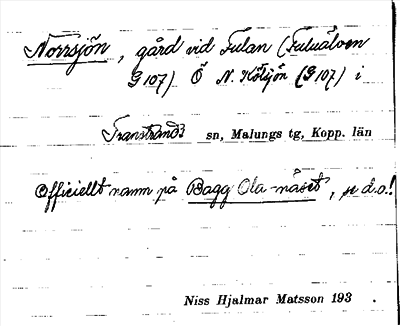 Norrsjön, gård vid Fulan (Fuluälven
G 107) Ö N. Kölsjön (G 107) i
Transtrands sn, Malungs tg, Kopp. län
Officiellt namn på Bagg Ola-näset, se d.o.!
Niss Hjalmar Matsson 193 .